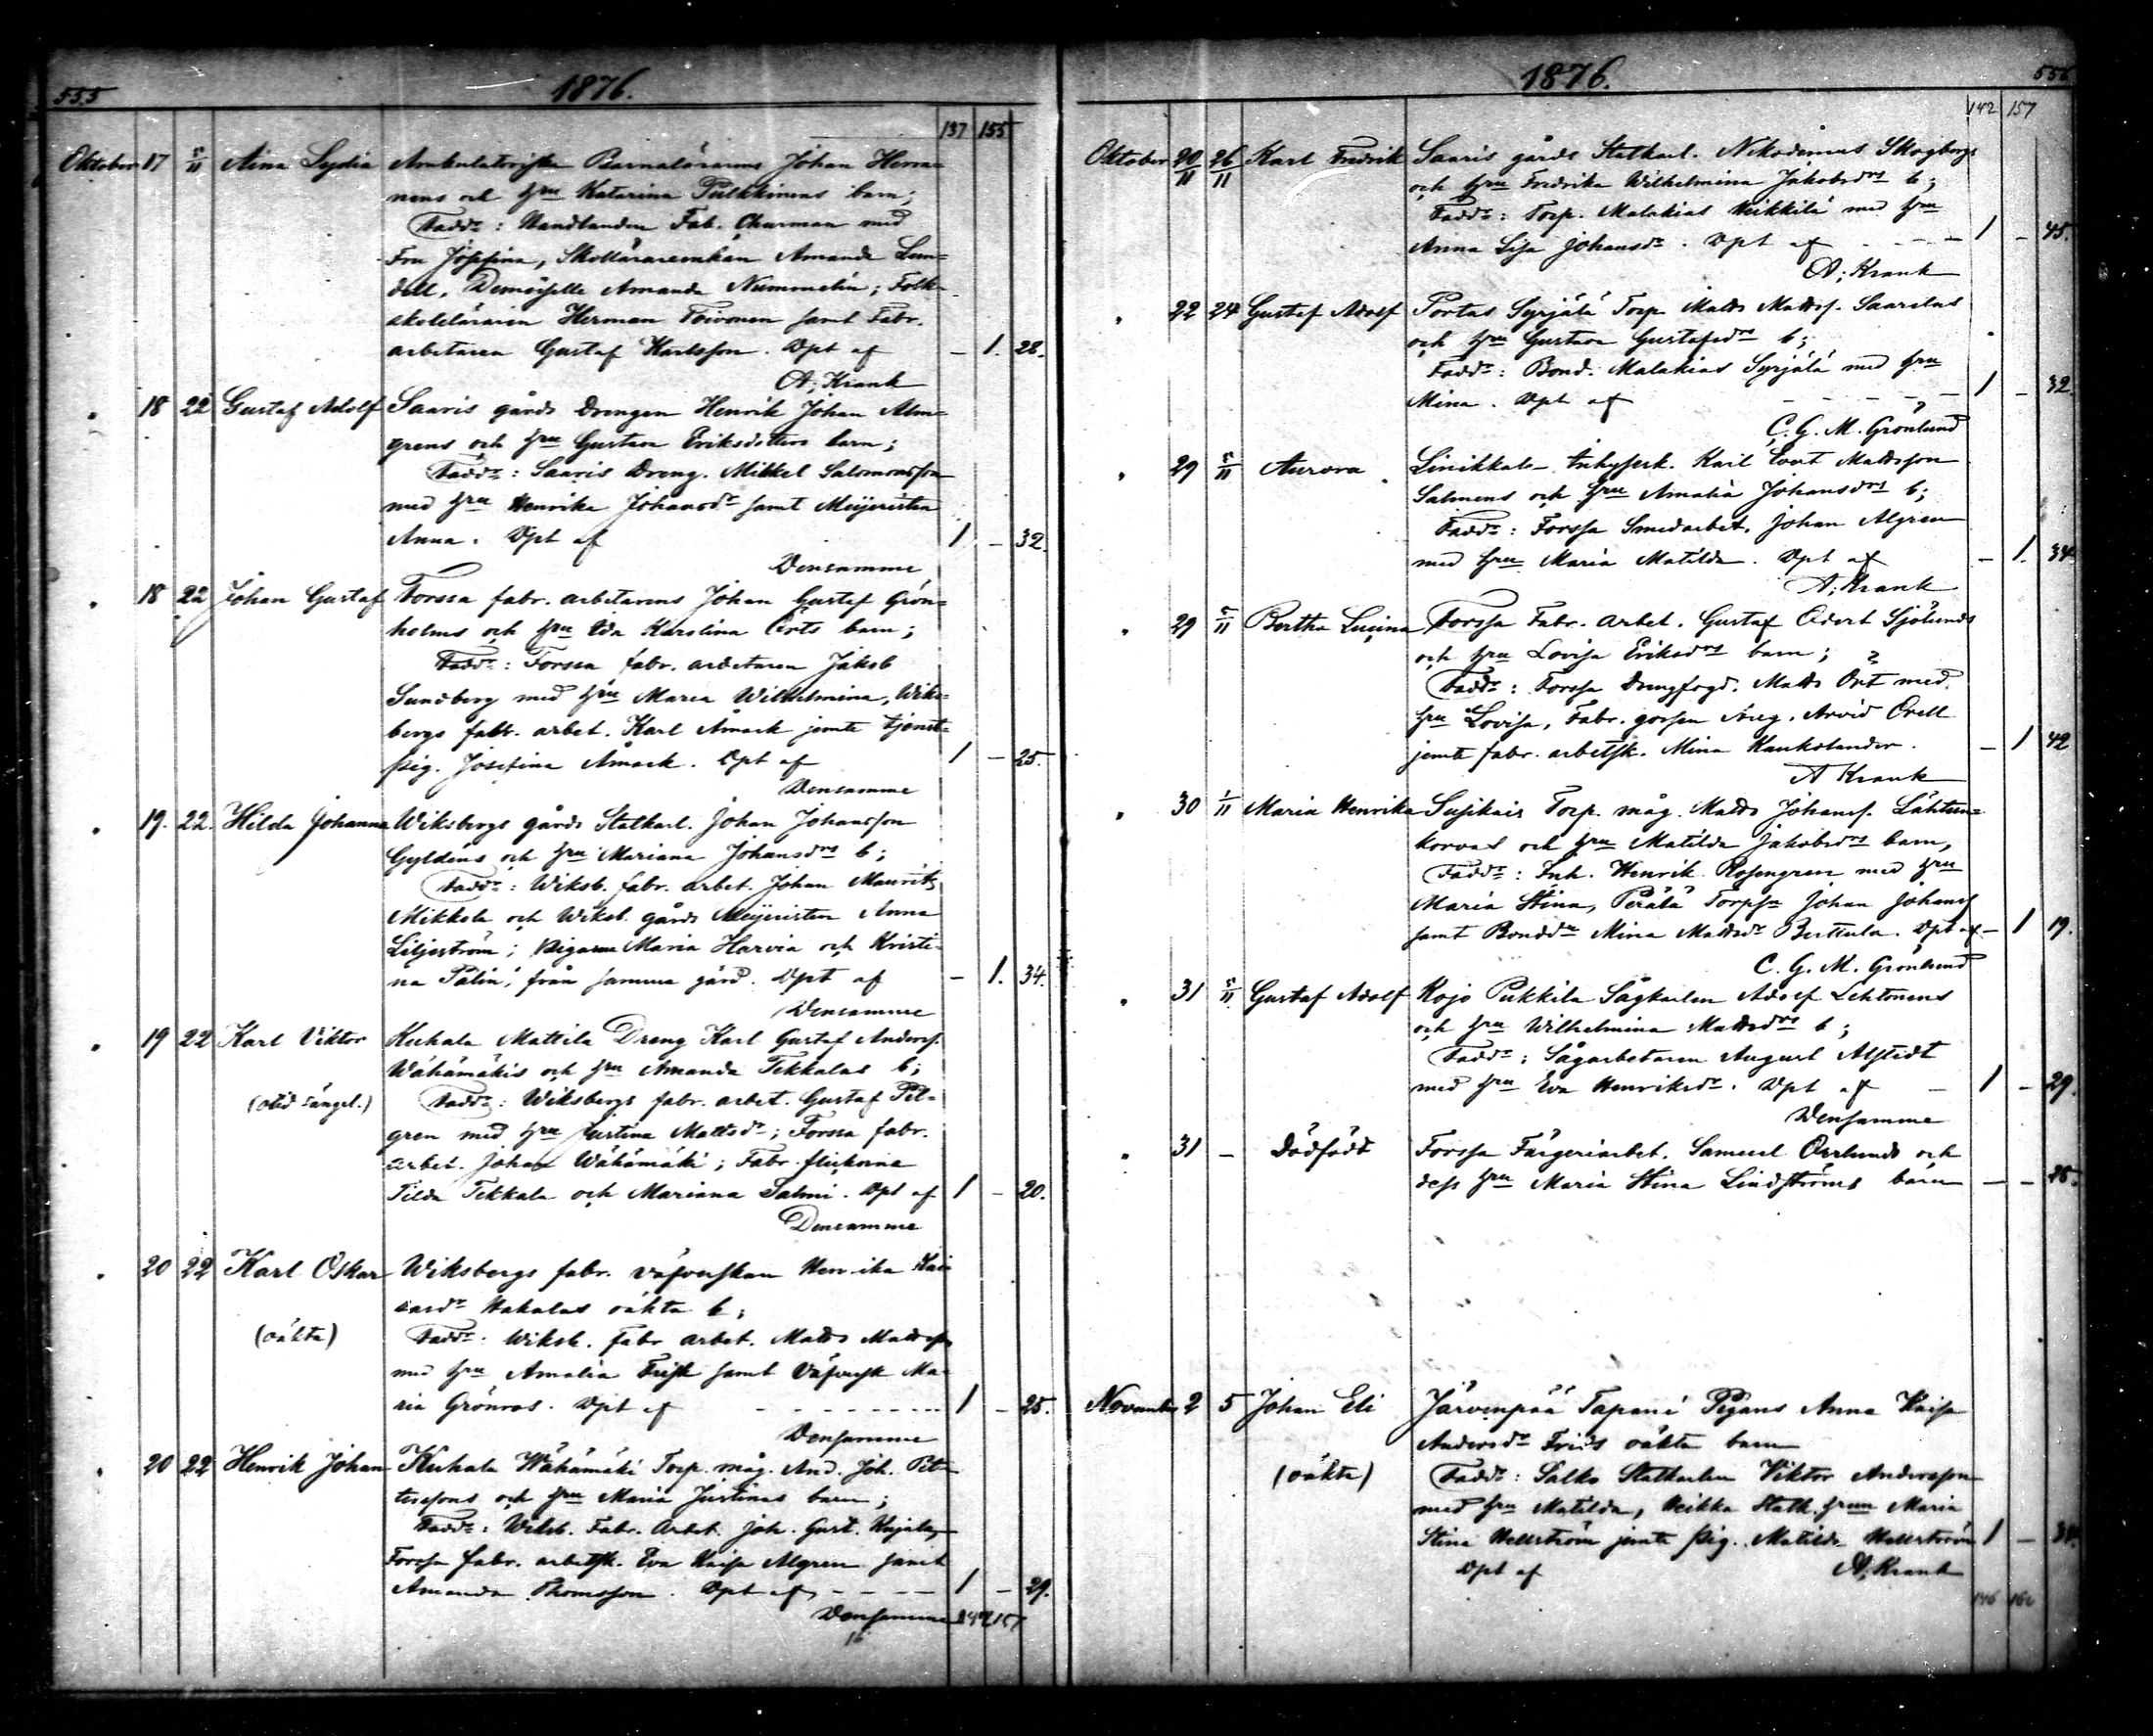 555
1876.
137 155
Oktober 17 5/11 Aina Lydia Ambulatoriska Barnalärarens Johan Herra-
nens och hru Katarina Pulkkinens barn;
Fadd: Handlanden Fab. Churman med
Fru Josefina, Skollärareenkan Amanda Lun-
dell, Demoiselle Amanda Nummelin; Folk-
skoleläraren Herman Toivonen samt Fabr.
arbetaren Gustaf Karlsson. Dpt af – 1. 28.
A. Krank
" 18 22 Gustaf Adolf Saaris gårds Drengen Henrik Johan Alm-
grens och hru Gustava Eriksdotters barn;
Fadd: Saaris Dreng. Mikkel Salomonsson
med hru Henrika Johansdr samt Meijeristen
Anna. Dpt af 1 – 32.
Densamme
" 18 22 Johan Gustaf Forssa fabr. arbetarens Johan Gustaf Grön-
holms och hru Ida Karolina Orts barn;
Fadd: Forssa fabr. arbetaren Jakob
Sundberg med hru Maria Wilhelmina, Wiks-
bergs fabr. arbet. Karl Åmark jemte tjenst-
pig. Josefina Åmark. Dpt af 1 – 25.
Densamme
" 19. 22. Hilda Johanna Wiksbergs gårds Statkarl. Johan Johansson
Gyldéns och hru Mariana Johansdrs b;
Fadd: Wiksb. fabr. arbet. Johan Maurits
Mikkola och Wiksb. gårds Meijeristen Anna
Liljeström; pigorna Maria Harvia och Kristi-
na Palin, från samma gård. Dpt af – 1. 34.
Densamme
" 19 22 Karl Viktor Kuhala Mattila Dreng Karl Gustaf Anderss.
Wähämäkis och hru Amanda Tekkalas b;
(otid sängel.) Fadd: Wiksbergs fabr. arbet. Gustaf Pil-
gren med hru Justina Mattsdr; Forssa fabr.
arbet. Johan Wähämäki; Fabr. flickorna
Tilda Tekkala och Mariana Salmi. Dpt af 1 – 20.
Densamme
" 20 22 Karl Oskar Wiksbergs fabr. väfverskan Henrika
Hakalas oäkta b;
(oäkta) Fadd: Wiksb. fabr arbet. Matts Mattsson
med hru Amalia Frisk samt Väfversk Ma-
ria Grönroos. Dpt af 1 – 25.
Densamme
" 20 22 Henrik Johan Kuhala Wähämäki Torp. måg. And. Joh. Pet-
terssons och hru Maria Justinas barn;
Fadd: Wiksb. Fabr. Arbet. Joh. Gust. Kujala,
Forssa fabr. arbetsk. Eva Kaisa Algren samt
Amanda Thomsson. Dpt af 1 – 29.
Densamme 142 157
16
1876.
556
142 157
Oktober 20/11 26/11 Karl Fredrik Saaris gårds Statkarl. Nikodemus Skogbergs
och hru Fredrika Wilhelmina Jakobsdrs b;
Fadd: Torp. Malakias Heikkilä med hru
Anna Lisa Johansdr. Dpt af 1 – 45.
A. Krank
" 22 24 Gustaf Adolf Portas Syrjälä Torp Matts Mattss. Saarelas
och hru Gustava Gustafsdrs b;
Fadd: Bond. Malakias Syrjälä med hru
Mina. Dpt af 1 – 32.
C. G. M. Grönlund
" 29 5/11 Aurora Linikkala Inhyserk. Karl Evert Mattsson
Salmens och hru Amalia Johansdrs b;
Fadd: Forssa Smedarbet. Johan Algren
med hru Maria Matilda. Dpt af – 1. 34
A. Krank
" 29 5/11 Bertha Lucina Forssa Fabr. arbet. Gustaf Edert Sjölunds
och hru Lovisa Eriksdrs barn;
Fadd: Forssa Drengfogd. Matts Ört med
hru Lovisa, Fabr. gossen Aug. Arvid Orell
jemte fabr. arbetsk. Mina Kaukolander. – 1 42
A Krank
" 30 1/11 Maria Henrika Sujikais Torp. måg. Matts Johanss. Lähteen-
korvas och hru Matilda Jakobsdrs barn,
Fadd: Inh. Henrik Rosengren med hru
Maria Stina, Perälä Torps Johan Johanss
samt Bondd Mina Mattsdr Berttula. Dpt af – 1 19.
C. G. M. Grönlund
" 31 5/11 Gustaf Adolf Kojo Pukkila Sågkarlen Adolf Lehtonens
och hru Wilhelmina Mattsdrs b;
Fadd: Sågarbetaren August Alstedt
med hru Eva Henriksdr. Dpt af – 1 – 29.
Densamme
" 31 – Dödfödt Forssa Färgeriarbet. Samuel Oerlunds och
dess hru Maria Stina Lindströms barn — – 26.
November 2 5 Johan Eli Järvenpää Tapani Pigans Anna Kaisa
Andersdr Friis oäkta barn
(oäkta) Fadd: Salko Statkarlen Viktor Andersson
med hru Matilda, Heikka Statk. hrun Maria
Stina Hellström jemte pig. Matilda Hellström 1 – 34.
Dpt af A. Krank
146 160